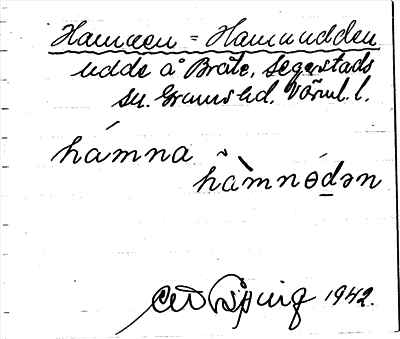 Hamnen = Hamnudden
udde å Bråte, Segerstads
sn. Grums hd. Värml. l.
hámna
hàmnödən
1942.